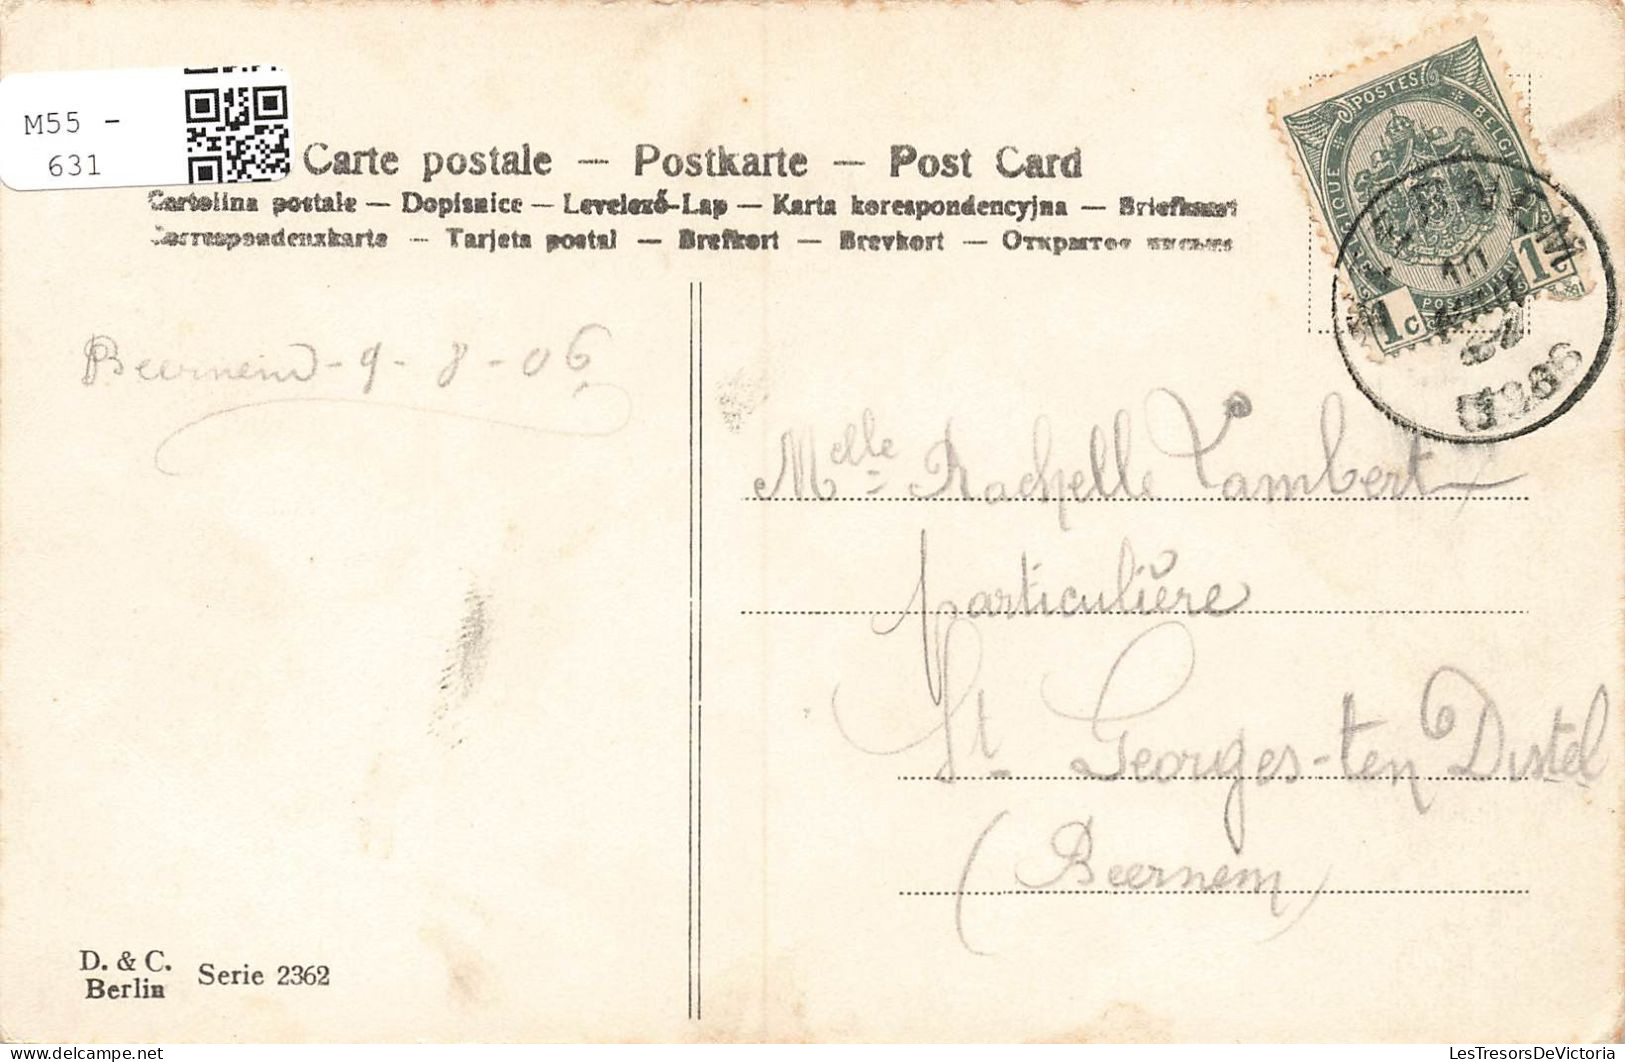 M55 -
631
Carte postale — Postkarte — Post Card
Cartolina postale — Dopisnice — Levelező-Lap — Karta korespondencyjna — Briefkaart
Correspondenzkarte — Tarjeta postal — Brefkort — Brevkort — Открытое письмо
POSTES
BELGIQUE
1c
1c
BEERNEM
10
Beernem - 9 - 8 - 06
Melle Rachelle Lambert
particulière
St Georges-ten Distel
(Beernem)
D. & C.
Berlin
Serie 2362
LesTresorsDeVictoria